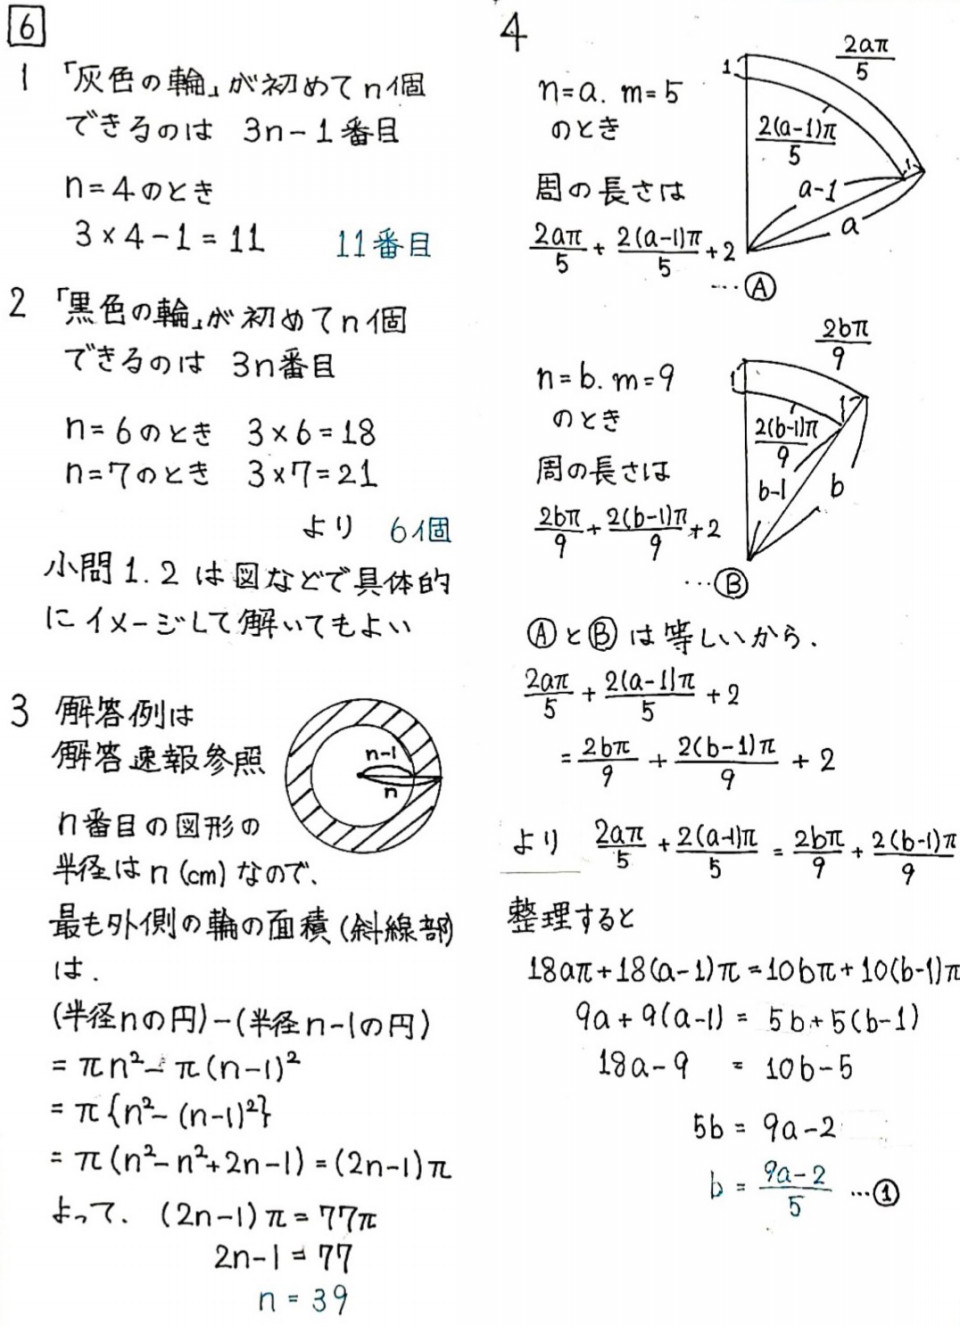 6
1 「灰色の輪」が初めてn個
できるのは 3n-1番目
n=4のとき
3×4-1=11 11番目
2 「黒色の輪」が初めてn個
できるのは 3n番目
n=6のとき 3×6=18
n=7のとき 3×7=21
より 6個
小問1.2は図などで具体的
にイメージして解いてもよい
3 解答例は
解答速報参照
n-1
n
n番目の図形の
半径はn(cm)なので、
最も外側の輪の面積(斜線部)
は.
(半径nの円)-(半径n-1の円)
=πn²-π(n-1)²
=π{n²-(n-1)²}
=π(n²-n²+2n-1)=(2n-1)π
よって. (2n-1)π=77π
2n-1=77
n=39
4
n=a. m=5
のとき
周の長さは
2aπ/5 + 2(a-1)π/5 +2
…Ⓐ
1
2aπ/5
2(a-1)π/5
1
a-1
a
n=b. m=9
のとき
周の長さは
2bπ/9 + 2(b-1)π/9 +2
…Ⓑ
1
2bπ/9
2(b-1)π/9
1
b-1
b
ⒶとⒷは等しいから.
2aπ/5 + 2(a-1)π/5 +2
= 2bπ/9 + 2(b-1)π/9 + 2
より 2aπ/5 + 2(a-1)π/5 = 2bπ/9 + 2(b-1)π/9
整理すると
18aπ+18(a-1)π=10bπ+10(b-1)π
9a+9(a-1) = 5b+5(b-1)
18a-9 = 10b-5
5b = 9a-2
b = 9a-2/5 …①